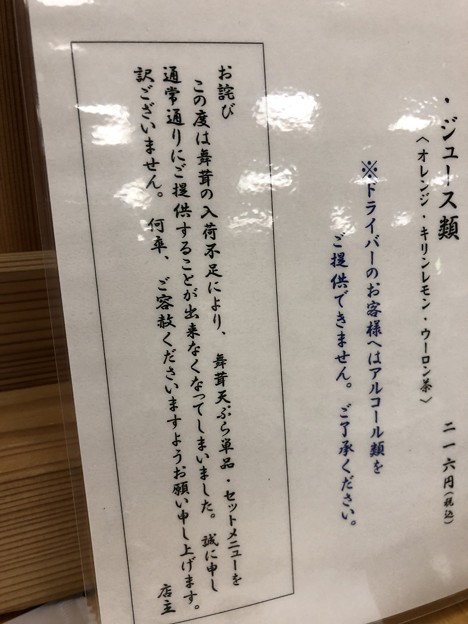 ・ジュース類
〈オレンジ・キリンレモン・ウーロン茶〉 二一六円(税込)
※ドライバーのお客様へはアルコール類を
ご提供できません。ご了承ください。
お詫び
この度は舞茸の入荷不足により、舞茸天ぷら単品・セットメニューを
通常通りにご提供することが出来なくなってしまいました。誠に申し
訳ございません。何卒、ご容赦くださいますようお願い申し上げます。
店主